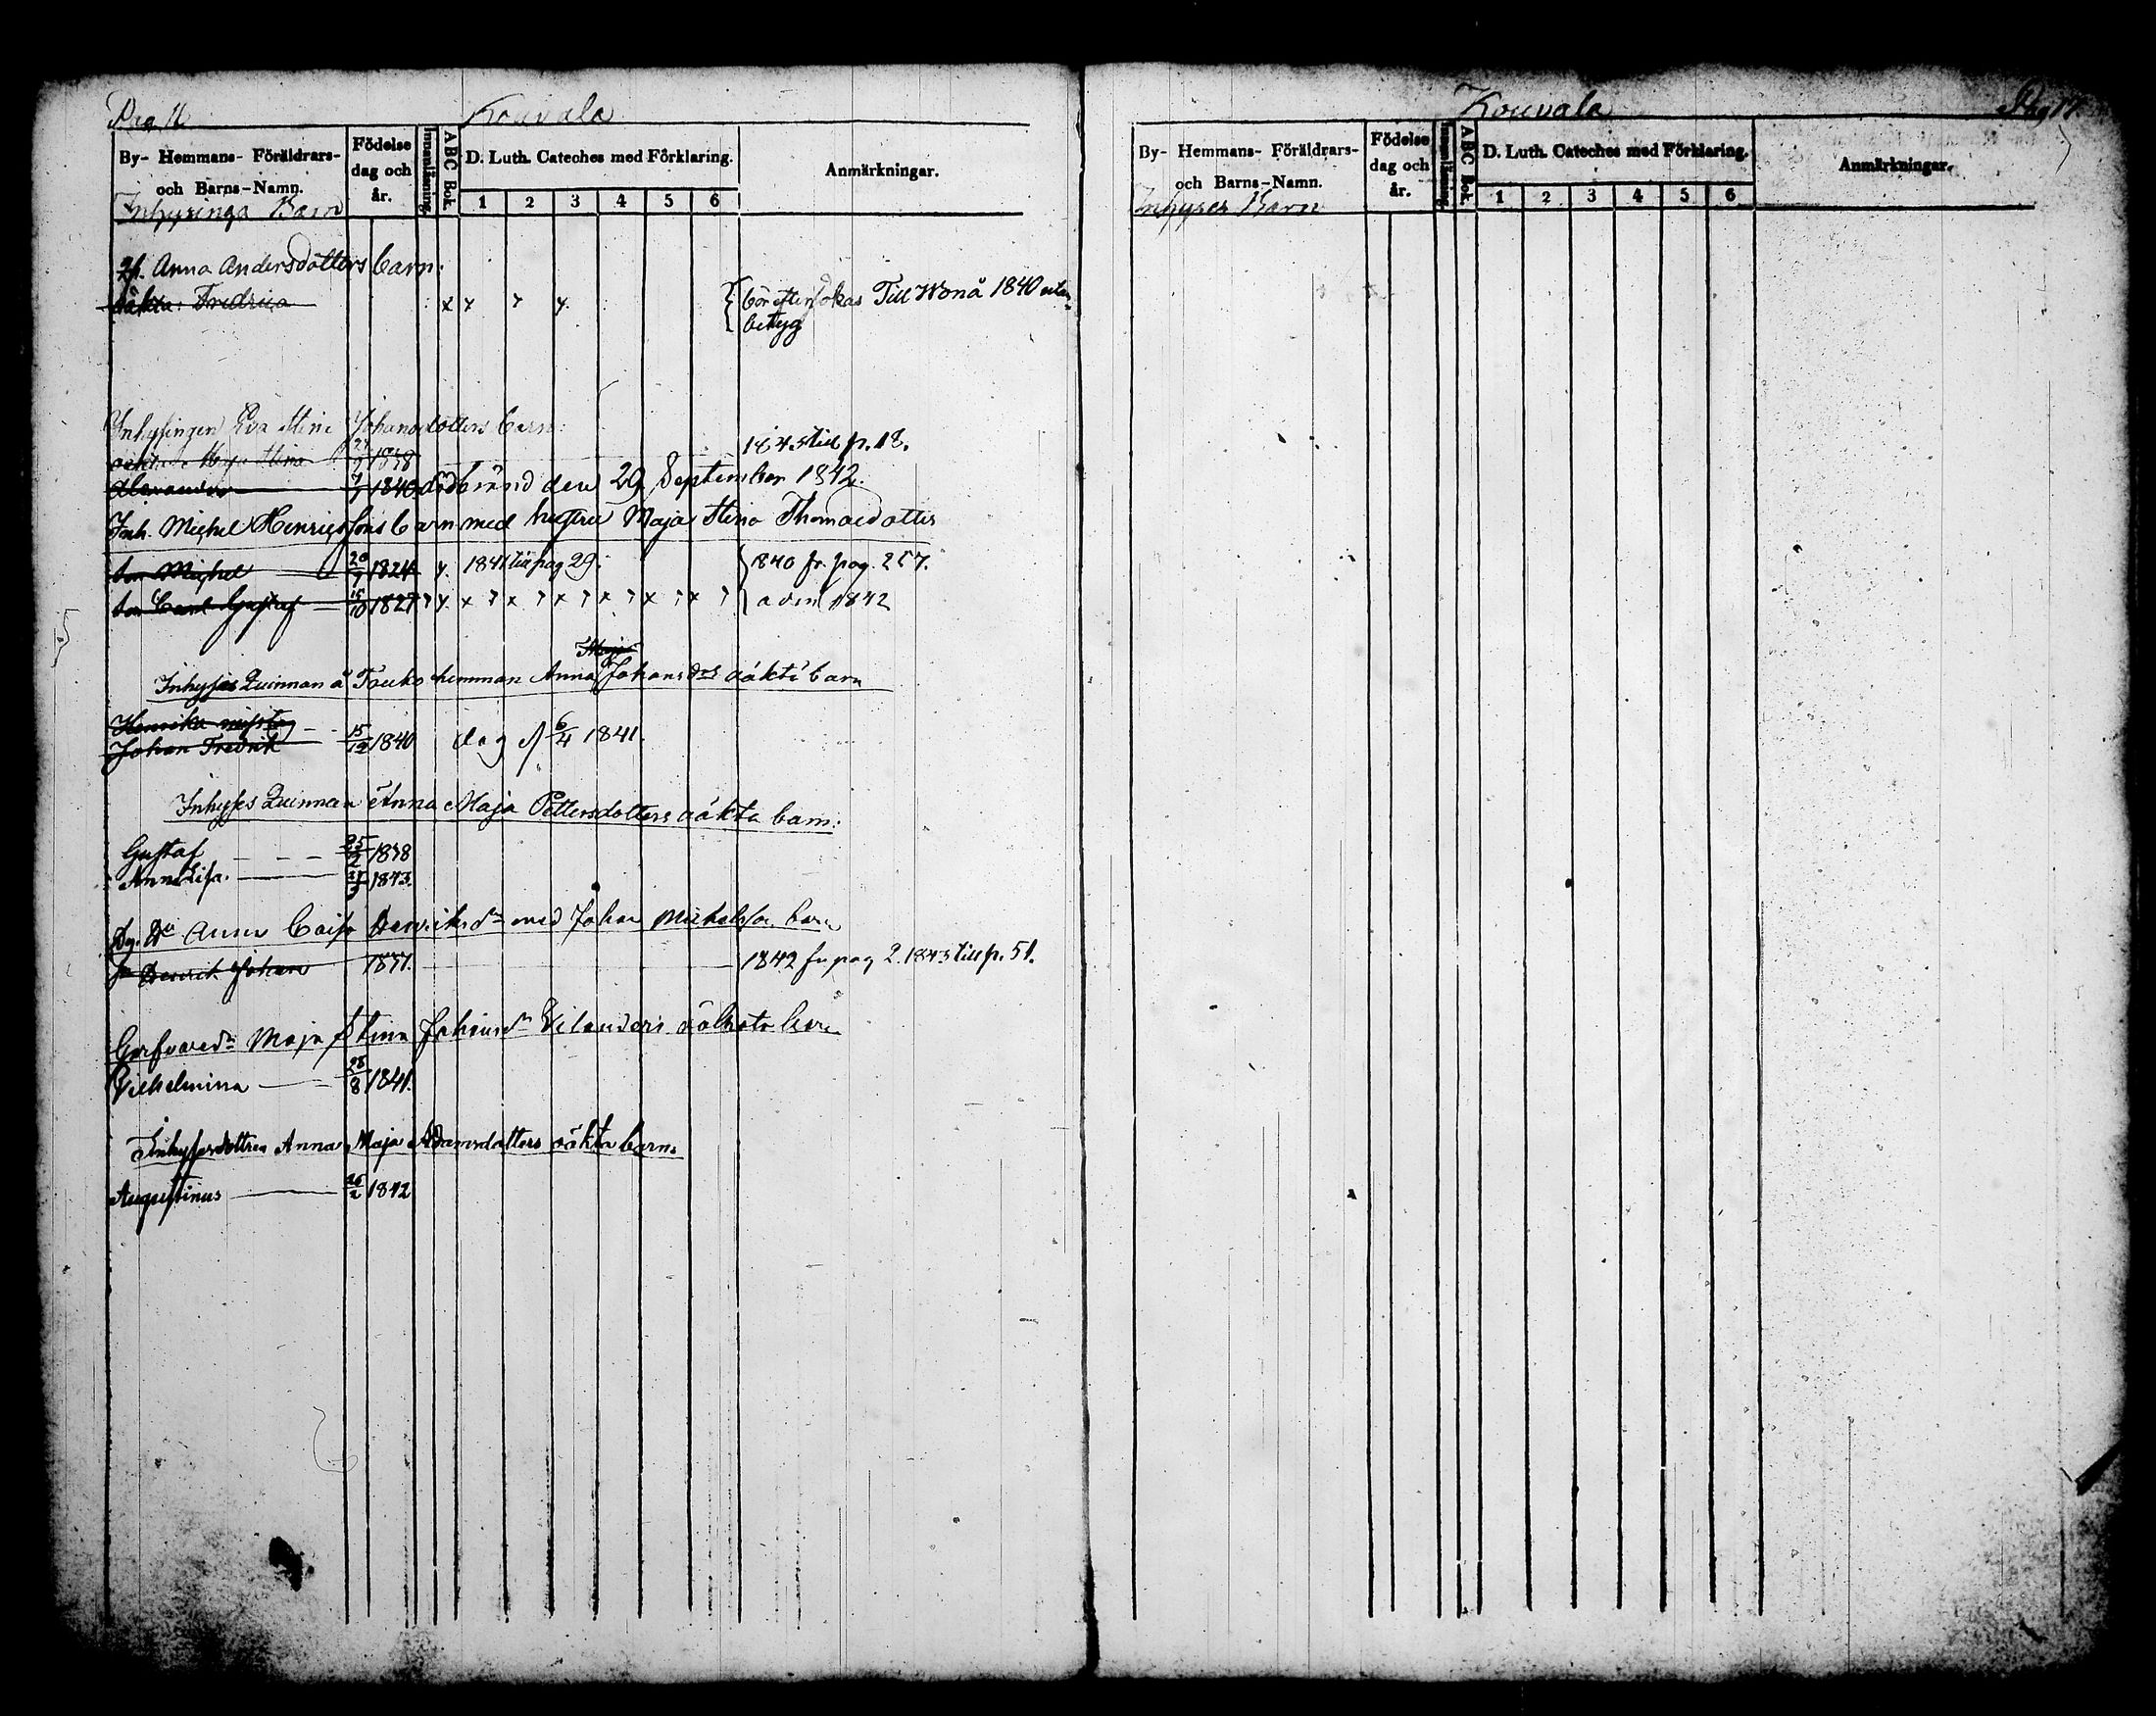 Kouvala
By- Hemmans- Föräldrars-
och Barns-Namn.
Födelse
dag och
år.
Innanläsning.
A B C Bok.
D. Luth. Cateches med Förklaring.
1 2 3 4 5 6
Anmärkningar.
Inhysinga Barn
Anna Andersdotters barn:
oäkta: Fredrica x
bör eftersökas Till Wånå 1840 utan
betyg
Inhysingen Eva Stina Johansdotters barn:
Maja Stina 1838 1845 till p. 18.
Alexander 1840 död bränd den 29 September 1842.
Inh. Michel Henricssons barn med hustru Maja Stina Thomasdotter
son Michel 20/9 1824 1841 till pag 29. 1840 fr. pag. 257.
son Carl Gustaf 15/10 1827 x x x x x x 1842
Maja
Inhyses Quinnan å Touko hemman Anna Johansdrs oäkta barn
Henrika
Johan Fredrik 15/12 1840 dog d 6/4 1841.
Inhyses Quinnan Anna Maja Pettersdotters oäkta barn:
Gustaf 25/2 1838
Anna Lisa. 1843.
Anna Caisa Henriksdr med Johan Michelsson barn
Henrik Johan 1842 fr pag 2. 1843 till p. 51.
Maja Stina Johansdr Velanders oäkta barn
Vilhelmina 28/8 1841.
Inhysesdottren Anna Maja Adamsdotters oäkta barn.
Augustinus 26/2 1842
Kouvala
Pag 17.
By- Hemmans- Föräldrars-
och Barns-Namn.
Födelse
dag och
år.
Innanläsning.
A B C Bok.
D. Luth. Cateches med Förklaring.
1 2 3 4 5 6
Anmärkningar.
Inhyses Barn